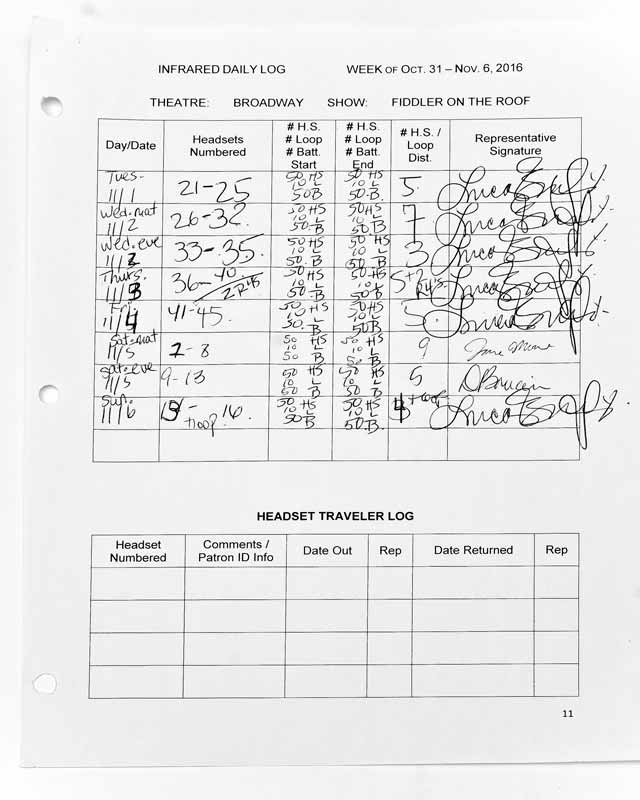 INFRARED DAILY LOG WEEK OF OCT. 31 – NOV. 6, 2016
THEATRE: BROADWAY SHOW: FIDDLER ON THE ROOF
Day/Date Headsets Numbered # H.S. # Loop # Batt. Start # H.S. # Loop # Batt. End # H.S. / Loop Dist. Representative Signature
Tues. 11/1 21-25 50 HS 10 L 50 B 50 HS 10 L 50 B 5
Wed. mat 11/2 26-32 50 HS 10 L 50 B 50 HS 10 L 50 B 7
Wed. eve 11/2 33-35 50 HS 10 L 50 B 50 HS 10 L 50 B 3
Thurs. 11/3 36-40 50 HS 10 L 50 B 50 HS 10 L 50 B 5+2
Fri 11/4 41-45 50 HS 10 L 50 B 50 HS 10 L 50 B 5
Sat-mat 11/5 2-8 50 HS 10 L 50 B 50 HS 10 L 50 B 9
Sat-eve 11/5 9-13 50 HS 10 L 50 B 50 HS 10 L 50 B 5
Sun. 11/6 16. +loop 50 HS 10 L 50 B 50 HS 10 L 50 B +loop
HEADSET TRAVELER LOG
Headset Numbered Comments / Patron ID Info Date Out Rep Date Returned Rep
11